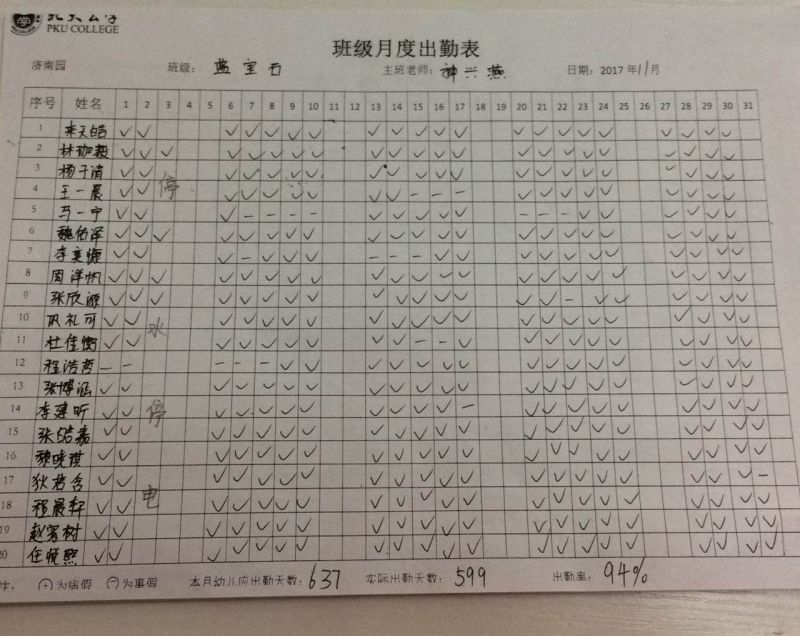 北大公学
PKU COLLEGE
班级月度出勤表
济南园 班级: 蓝宝石 主班老师: 神兴燕 日期: 2017 年 11 月
序号 姓名 1 2 3 4 5 6 7 8 9 10 11 12 13 14 15 16 17 18 19 20 21 22 23 24 25 26 27 28 29 30 31
1 ✓ ✓ ✓ ✓ ✓ ✓ ✓ ✓ ✓ ✓ ✓ ✓ ✓ ✓ ✓ ✓ ✓ ✓ ✓ ✓ ✓
2 林珈毅 ✓ ✓ ✓ ✓ ✓ ✓ ✓ ✓ ✓ ✓ ✓ ✓ ✓ ✓ ✓ ✓ ✓ ✓ ✓ ✓ ✓ ✓
3 杨子清 ✓ ✓ ✓ ✓ ✓ ✓ ✓ ✓ ✓ ✓ ✓ ✓ ✓ ✓ ✓ ✓ ✓ ✓ ✓ ✓ ✓
4 王一晨 ✓ ✓ 停 ✓ ✓ ✓ ✓ ✓ ✓ ✓ - - - ✓ ✓ ✓ ✓ ✓ ✓ ✓ ✓ ✓
5 马一宁 ✓ ✓ ✓ - - - - ✓ ✓ ✓ ✓ ✓ - - - ✓ ✓ ✓ ✓ ✓ ✓
6 魏伯泽 ✓ ✓ ✓ ✓ ✓ ✓ ✓ ✓ ✓ ✓ ✓ ✓ ✓ ✓ ✓ ✓ ✓ ✓ ✓ ✓ ✓ ✓
7 ✓ ✓ ✓ - ✓ ✓ ✓ - - - ✓ ✓ ✓ ✓ ✓ ✓ ✓ ✓ ✓ ✓ ✓
8 周洋帆 ✓ ✓ ✓ ✓ ✓ ✓ ✓ ✓ ✓ ✓ ✓ ✓ ✓ ✓ ✓ ✓ ✓ ✓ ✓ ✓ ✓ ✓
9 张欣源 ✓ ✓ ✓ ✓ ✓ ✓ ✓ ✓ ✓ ✓ ✓ ✓ ✓ ✓ ✓ - ✓ ✓ ✓ ✓ ✓ ✓
10 巩礼可 ✓ ✓ 水 ✓ ✓ ✓ ✓ ✓ ✓ ✓ ✓ ✓ ✓ ✓ ✓ ✓ ✓ ✓ ✓ ✓ ✓ ✓
11 杜佳衡 ✓ ✓ ✓ ✓ ✓ ✓ ✓ ✓ ✓ - - ✓ ✓ ✓ ✓ ✓ ✓ ✓ ✓ ✓ ✓
12 程浩哲 - - - - - ✓ ✓ ✓ ✓ ✓ ✓ ✓ ✓ ✓ ✓ ✓ ✓ ✓ ✓ ✓ ✓
13 张博涵 ✓ ✓ ✓ ✓ ✓ ✓ ✓ ✓ ✓ ✓ ✓ ✓ ✓ ✓ ✓ ✓ ✓ ✓ ✓ ✓ ✓
14 李建昕 ✓ ✓ 停 ✓ ✓ ✓ ✓ ✓ ✓ ✓ ✓ ✓ - ✓ ✓ ✓ ✓ ✓ ✓ ✓ ✓ ✓
15 张皓嘉 ✓ ✓ ✓ ✓ ✓ ✓ ✓ ✓ ✓ ✓ ✓ ✓ ✓ ✓ ✓ ✓ ✓ ✓ ✓ ✓ ✓
16 魏晓琪 ✓ ✓ ✓ ✓ ✓ ✓ ✓ ✓ ✓ ✓ ✓ ✓ ✓ ✓ ✓ ✓ ✓ ✓ ✓ ✓ ✓
17 狄若含 ✓ ✓ ✓ ✓ ✓ ✓ ✓ ✓ ✓ ✓ ✓ ✓ ✓ ✓ ✓ ✓ ✓ ✓ ✓ ✓ -
18 程晨轩 ✓ ✓ 电 ✓ ✓ ✓ ✓ ✓ ✓ ✓ ✓ ✓ ✓ ✓ ✓ ✓ ✓ ✓ ✓ ✓ ✓ ✓
19 赵家树 ✓ ✓ ✓ ✓ ✓ ✓ ✓ ✓ ✓ ✓ ✓ ✓ ✓ ✓ ✓ ✓ ✓ ✓ ✓ ✓ ✓
20 任悦熙 ✓ ✓ ✓ ✓ ✓ ✓ ✓ ✓ ✓ ✓ ✓ ✓ ✓ ✓ ✓ ✓ ✓ ✓ ✓ ✓ ✓
注: ⊕为病假 ⊖为事假 本月幼儿应出勤天数: 637 实际出勤天数: 599 出勤率: 94%